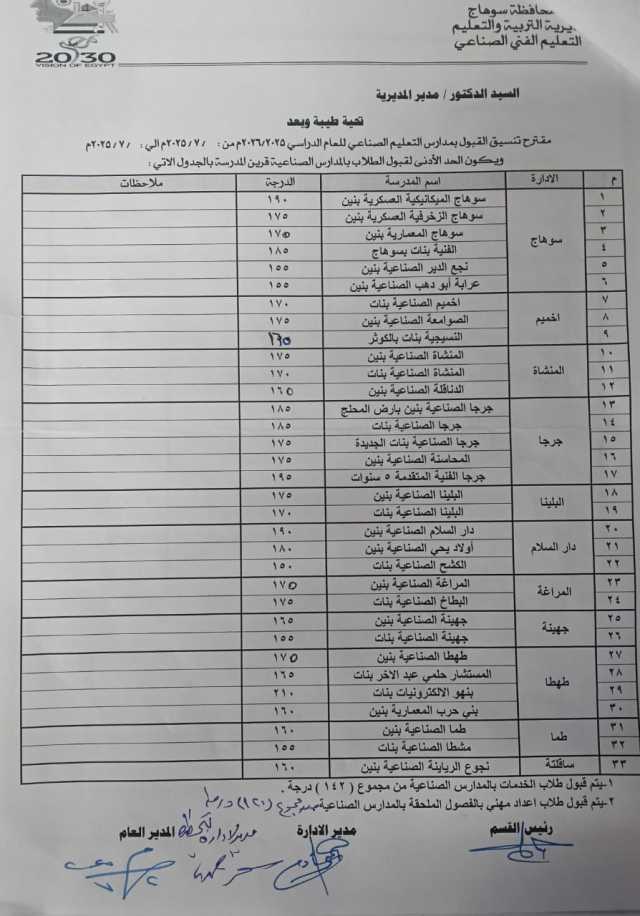 محافظة سوهاج
مديرية التربية والتعليم
التعليم الفني الصناعي
2030
VISION OF EGYPT
السيد الدكتور / مدير المديرية
تحية طيبة وبعد
مقترح تنسيق القبول بمدارس التعليم الصناعي للعام الدراسي ٢٠٢٦/٢٠٢٥م من : / ٧ / ٢٠٢٥م الي : / ٧ / ٢٠٢٥م
ويكون الحد الأدنى لقبول الطلاب بالمدارس الصناعية قرين المدرسة بالجدول الاتي :
م الادارة اسم المدرسة الدرجة ملاحظات
١ سوهاج سوهاج الميكانيكية العسكرية بنين ١٩٠
٢ سوهاج الزخرفية العسكرية بنين ١٧٥
٣ سوهاج المعمارية بنين ١٧٥
٤ الفنية بنات بسوهاج ١٨٥
٥ نجع الدير الصناعية بنين ١٥٥
٦ عرابة أبو دهب الصناعية بنين ١٥٥
٧ اخميم اخميم الصناعية بنات ١٧٠
٨ الصوامعة الصناعية بنين ١٧٥
٩ النسيجية بنات بالكوثر ١٦٥
١٠ المنشاة المنشاة الصناعية بنين ١٧٥
١١ المنشاة الصناعية بنات ١٧٠
١٢ الدناقلة الصناعية بنين ١٦٥
١٣ جرجا جرجا الصناعية بنين بارض المحلج ١٨٥
١٤ جرجا الصناعية بنات ١٨٥
١٥ جرجا الصناعية بنات الجديدة ١٧٥
١٦ المحاسنة الصناعية بنين ١٧٥
١٧ جرجا الفنية المتقدمة ٥ سنوات ١٩٥
١٨ البلينا البلينا الصناعية بنين ١٧٥
١٩ البلينا الصناعية بنات ١٧٠
٢٠ دار السلام دار السلام الصناعية بنين ١٩٠
٢١ أولاد يحي الصناعية بنين ١٨٠
٢٢ الكشح الصناعية بنات ١٥٠
٢٣ المراغة المراغة الصناعية بنين ١٧٥
٢٤ البطاخ الصناعية بنات ١٧٥
٢٥ جهينة جهينة الصناعية بنين ١٦٥
٢٦ جهينة الصناعية بنات ١٥٥
٢٧ طهطا طهطا الصناعية بنين ١٧٥
٢٨ المستشار حلمي عبد الاخر بنات ١٦٥
٢٩ بنهو الالكترونيات بنات ٢١٠
٣٠ بني حرب المعمارية بنين ١٦٠
٣١ طما طما الصناعية بنين ١٦٠
٣٢ مشطا الصناعية بنات ١٥٥
٣٣ ساقلتة نجوع الرياينة الصناعية بنين ١٦٠
١-يتم قبول طلاب الخدمات بالمدارس الصناعية من مجموع ( ١٤٢ ) درجة .
٢-يتم قبول طلاب اعداد مهني بالفصول الملحقة بالمدارس الصناعية من مجموع (١٢٠) درجة
رئيس القسم مدير الادارة المدير العام